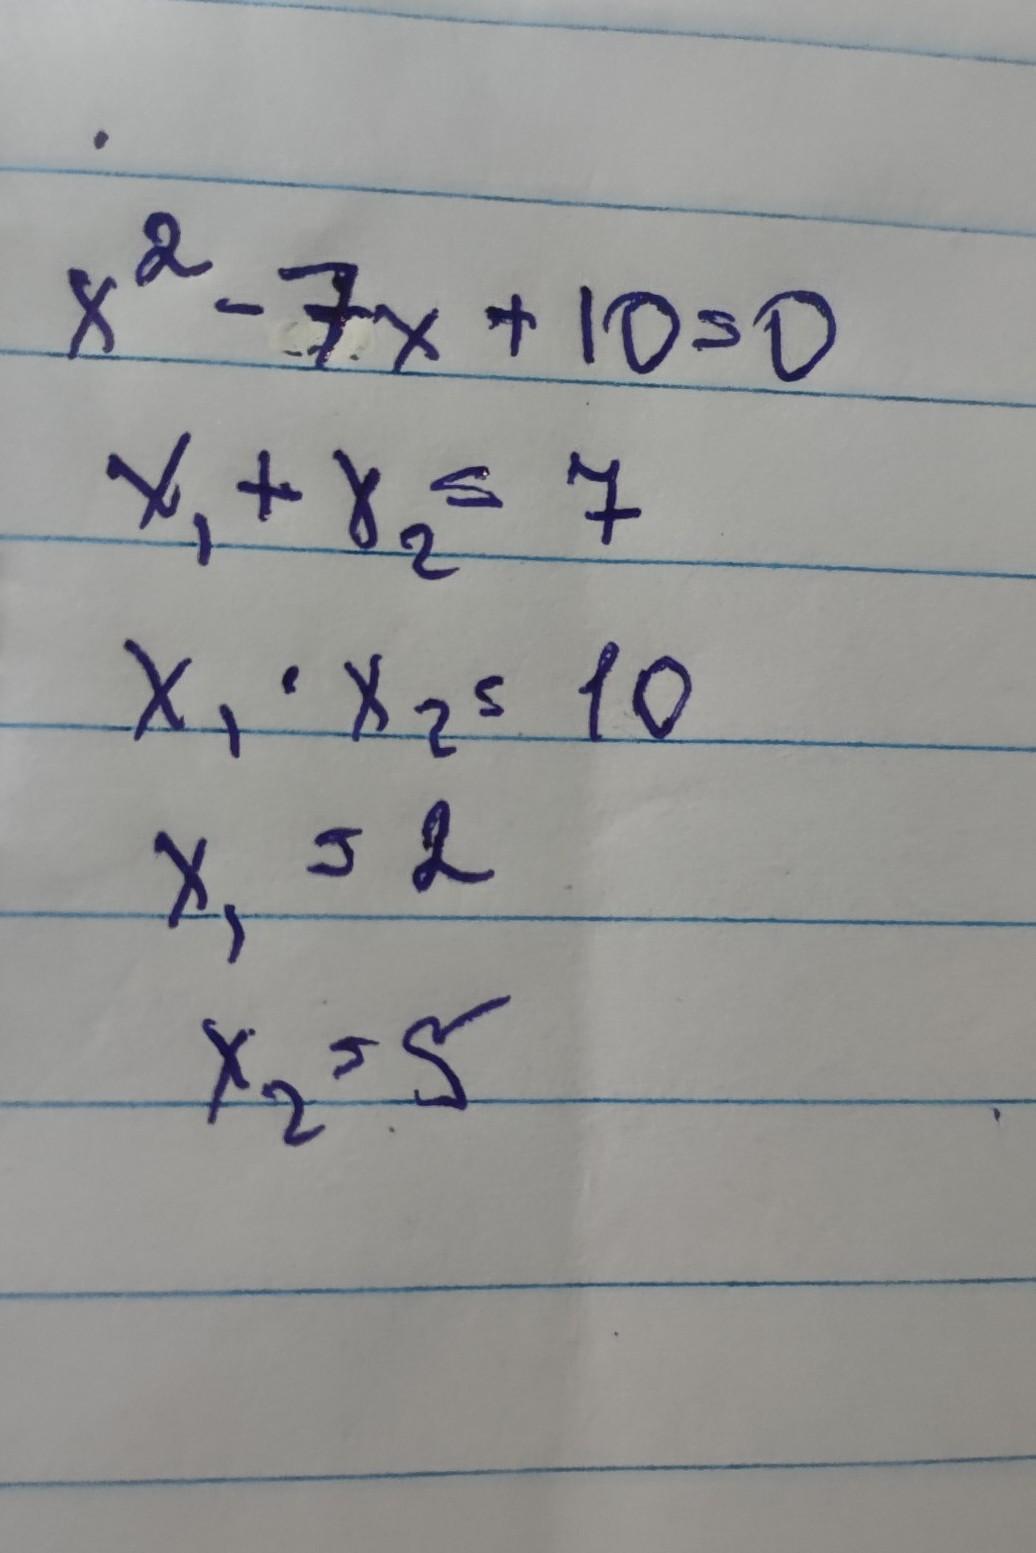 x² - 7x + 10 = 0
x₁ + x₂ = 7
x₁ · x₂ = 10
x₁ = 2
x₂ = 5